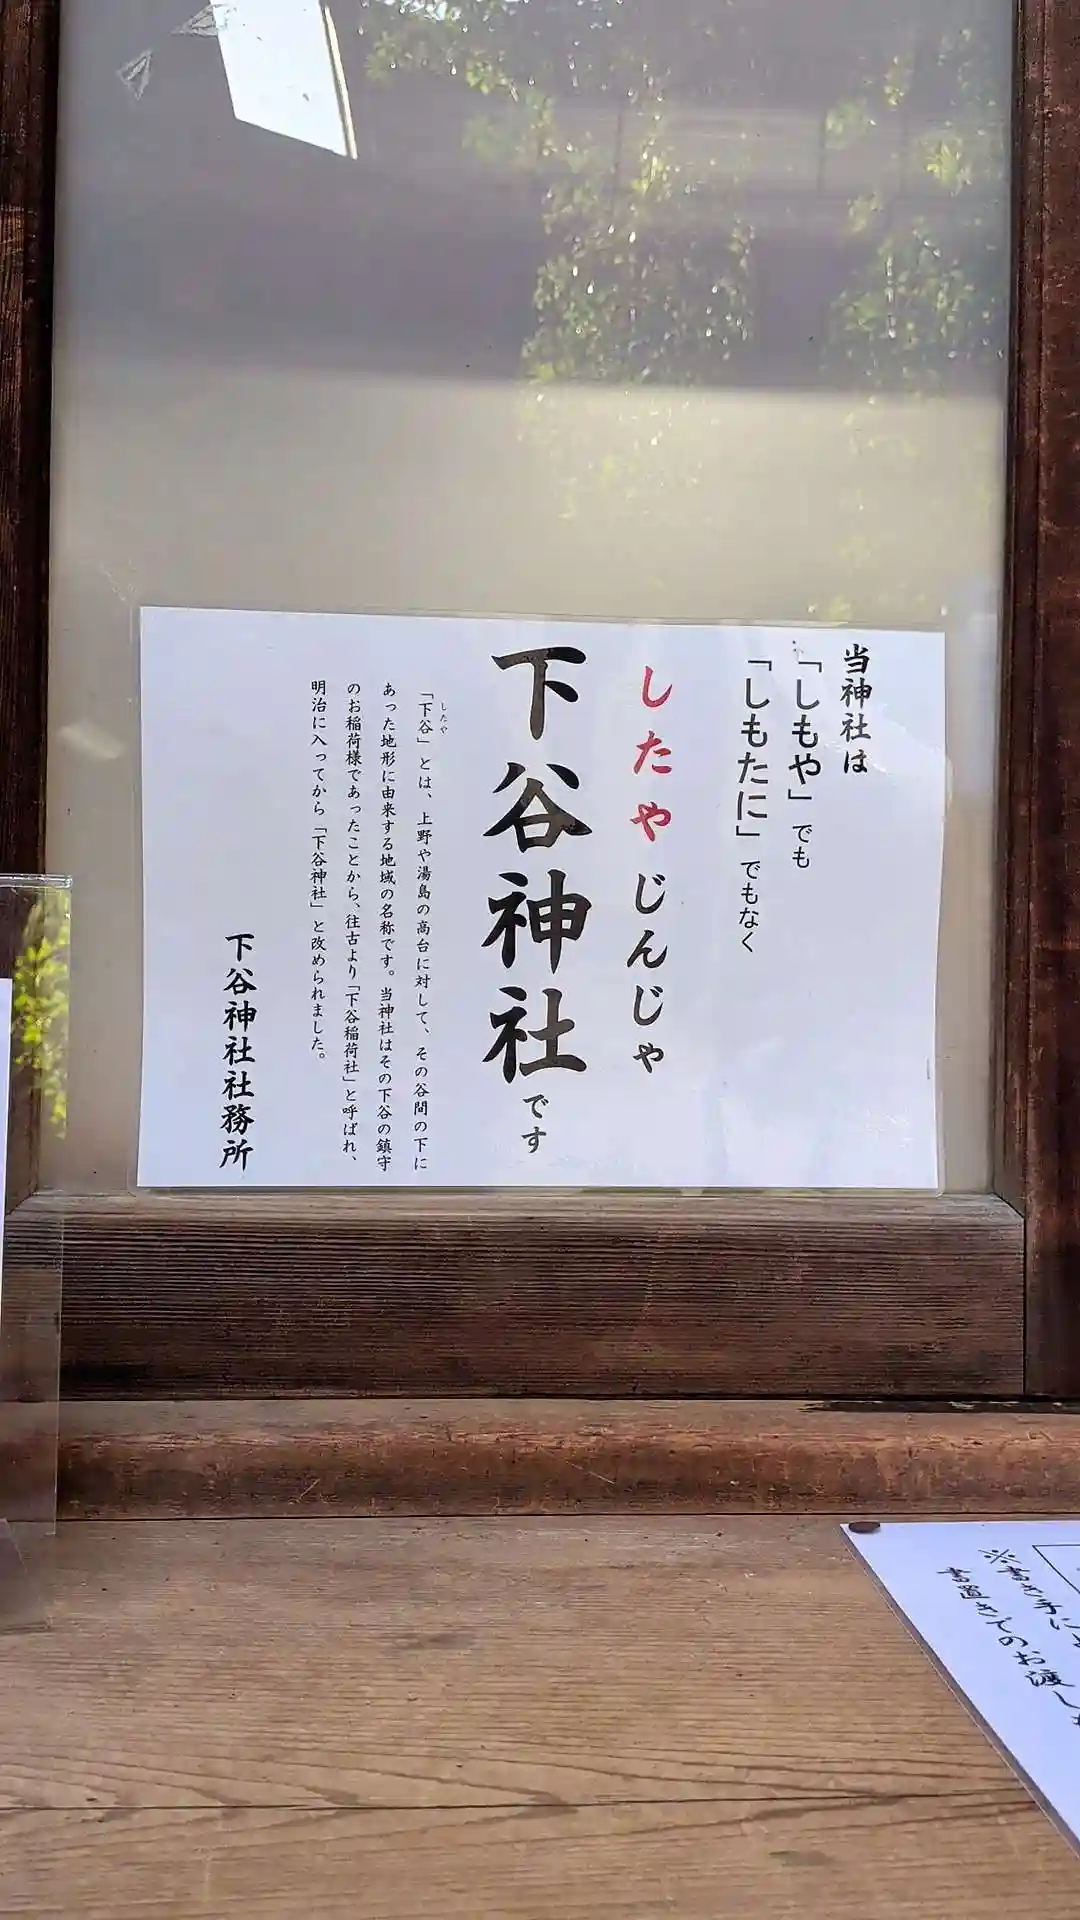 当神社は
「しもや」でも
「しもたに」でもなく
したやじんじゃ
下谷神社です
したや
「下谷」とは、上野や湯島の高台に対して、その谷間の下に
あった地形に由来する地域の名称です。当神社はその下谷の鎮守
のお稲荷様であったことから、往古より「下谷稲荷社」と呼ばれ、
明治に入ってから「下谷神社」と改められました。
下谷神社社務所
※書き手に
書置きでのお渡し